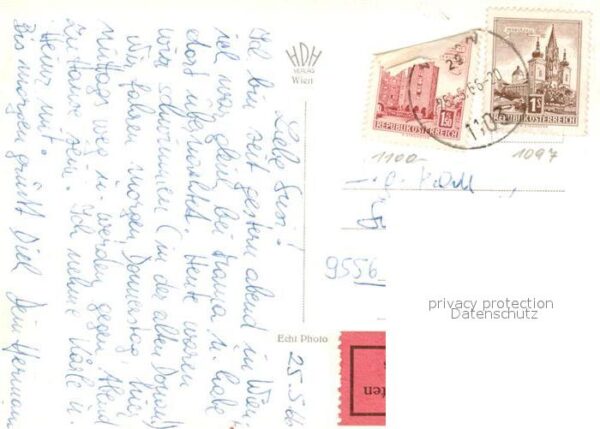 25.5.66
Liebe Susi!
Ich bin seit gestern abend in Wien.
ich war gleich bei Mama u. habe
dort übernachtet. Heute waren
wir schwimmen (in der alten Donau)
Wir fahren morgen Donnerstag hier
mittags weg u. werden gegen Abend
zu Hause sein. Ich nehme Karle u.
Heinz mit.
Bis morgen grüßt Dich Dein Hermann
HDH
VERLAG
Wien
Echt Photo
REPUBLIK ÖSTERREICH
1.50
REPUBLIK ÖSTERREICH
1S
25.5.66-20
1103
1100
1097
9556
privacy protection
Datenschutz